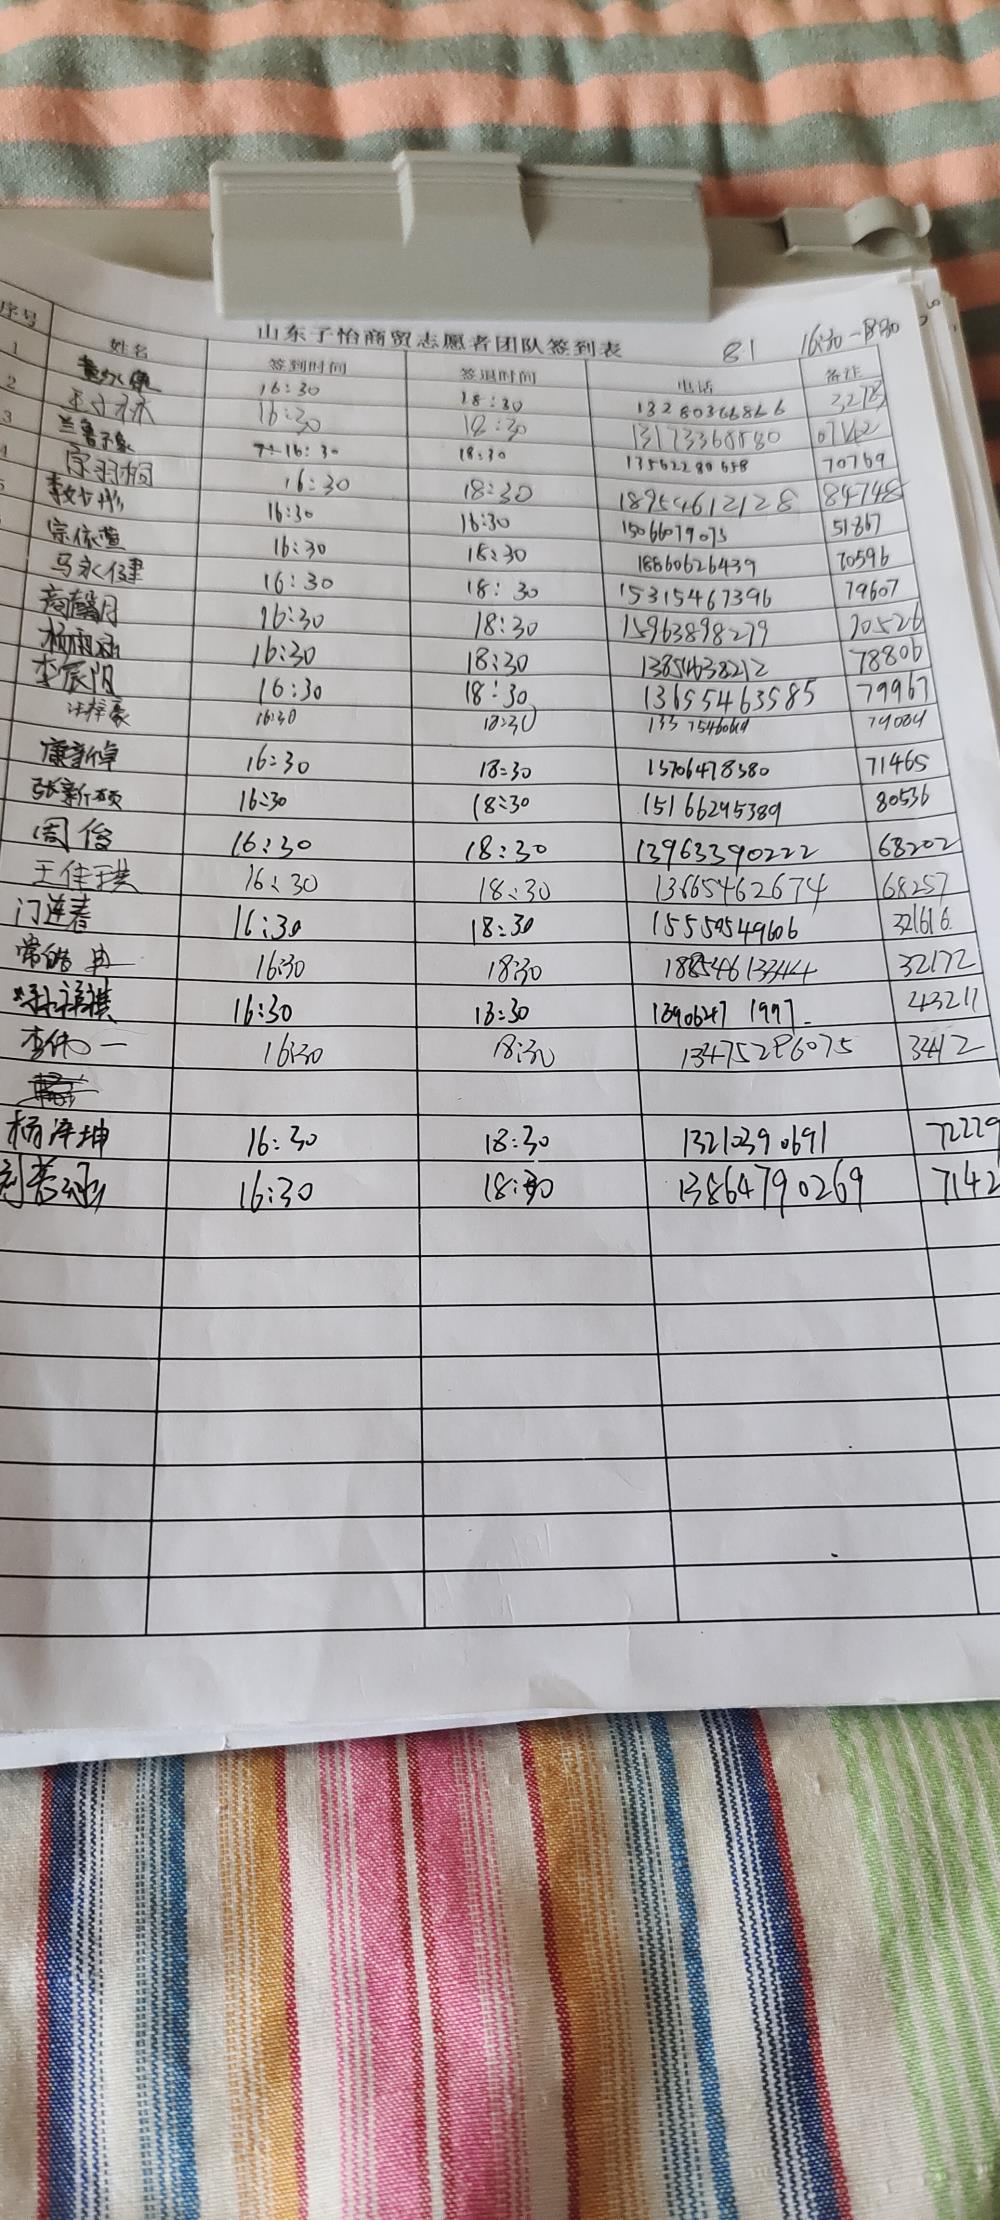 山东子怡商贸志愿者团队签到表 8.1 16:30-18:30
序号 姓名 签到时间 签退时间 电话 备注
1 16:30 18:30 13280366866
2 16:30 18:30 13173368880
3 16:30 18:30 13562280658 70769
宗羽桐 16:30 18:30 18954612128 84748
16:30 16:30 15066079073 51867
宗依萱 16:30 18:30 18860626439 70596
马永健 16:30 18:30 15315467396 79607
商馨月 16:30 18:30 15963898279 70526
杨雨涵 16:30 18:30 13854638212 78806
李辰阳 16:30 18:30 13655463585 79967
汪梓豪 16:30 18:30 79084
康新卓 16:30 18:30 13706478380 71465
张新硕 16:30 18:30 15166295389 80536
周俊 16:30 18:30 13963390222 68202
王佳琪 16:30 18:30 13665462674 68257
门连春 16:30 18:30 15550549606 321616
常皓冉 16:30 18:30 18854613344 32172
16:30 18:30 18906471997 43211
李伟一 16:30 18:30 13475286075 33412
杨泽坤 16:30 18:30 13210390691 72229
16:30 18:30 13864790269 7142